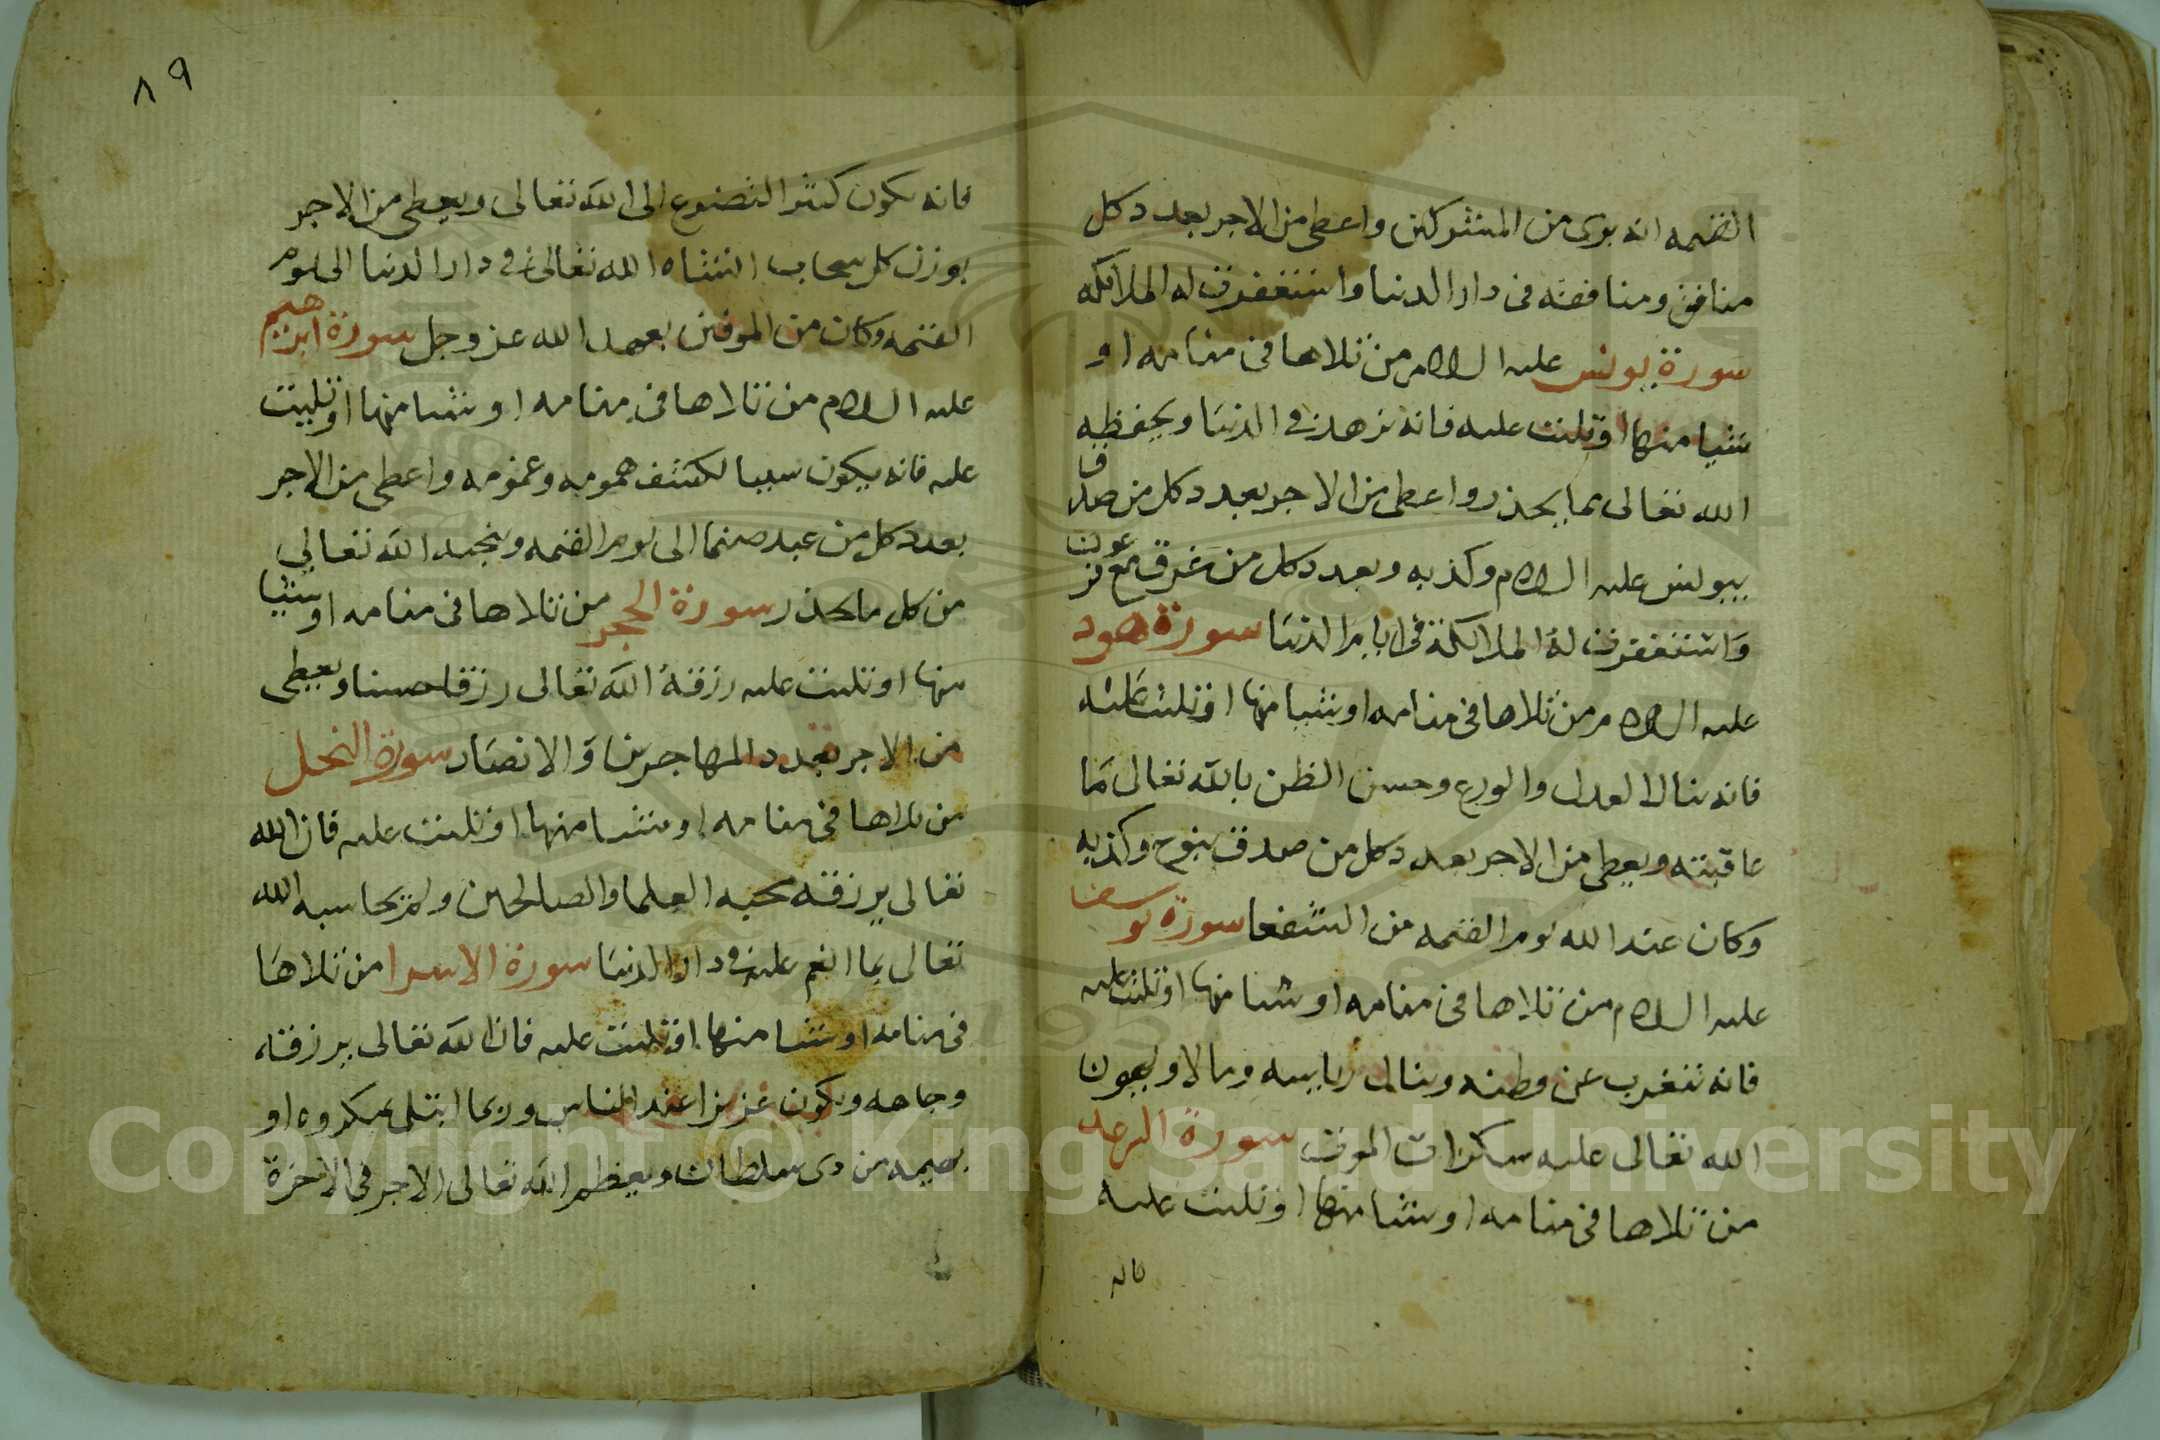 القيمه انه بري من المشركين واعطي من الاجر بعدد كل
منافق ومنافقه في دار الدنيا واستغفرت له الملائكه
سورة يونس عليه السلام من تلاها في منامه او
شيا منها او تليت عليه فانه يزهد في الدنيا ويحفظه
الله تعالى مما يحذر واعطي من الاجر بعدد كل من صدق
بيونس عليه السلام وكذبه وبعدد كل من غرق مع فرعون
واستغفرت له الملائكة في ايام الدنيا سورة هود
عليه السلام من تلاها في منامه او شيا منها او تليت عليه
فانه ينال العدل والورع وحسن الظن بالله تعالى ما
عاقبته ويعطي من الاجر بعدد كل من صدق بنوح وكذبه
وكان عند الله يوم القيمه من الشفعا سورة يوسف
عليه السلام من تلاها في منامه او شيا منها او تليت عليه
فانه يتغرب عن وطنه وينال رياسه ومالا ويهون
الله تعالى عليه سكرات الموت سورة الرعد
من تلاها في منامه او شيا منها او تليت عليه
فانه
٨٩
فانه يكون كثير التضرع الى الله تعالى ويعطي من الاجر
بوزن كل سحاب انشاه الله تعالى في دار الدنيا الى يوم
القيمه وكان من الموفين بعهد الله عز وجل سورة ابرهيم
عليه السلام من تلاها في منامه او شيا منها او تليت
عليه فانه يكون سببا لكشف همومه وغمومه واعطي من الاجر
بعدد كل من عبد صنما الى يوم القيمه وينجيه الله تعالى
من كل ما يحذر سورة الحجر من تلاها في منامه او شيا
منها او تليت عليه رزقه الله تعالى رزقا حسنا ويعطى
من الاجر بعدد المهاجرين والانصار سورة النحل
من تلاها في منامه او شيا منها او تليت عليه فان الله
تعالى يرزقه محبه العلما والصالحين ولم يحاسبه الله
تعالى بما انعم عليه في دار الدنيا سورة الاسرا من تلاها
في منامه او شيا منها او تليت عليه فان الله تعالى يرزقه
وجاهه ويكون عزيزا عند الناس وربما ابتلى بمكروه او
بصيبه من ذي سلطان ويعظم الله تعالى الاجر في الاخرة
Copyright © King Saud University